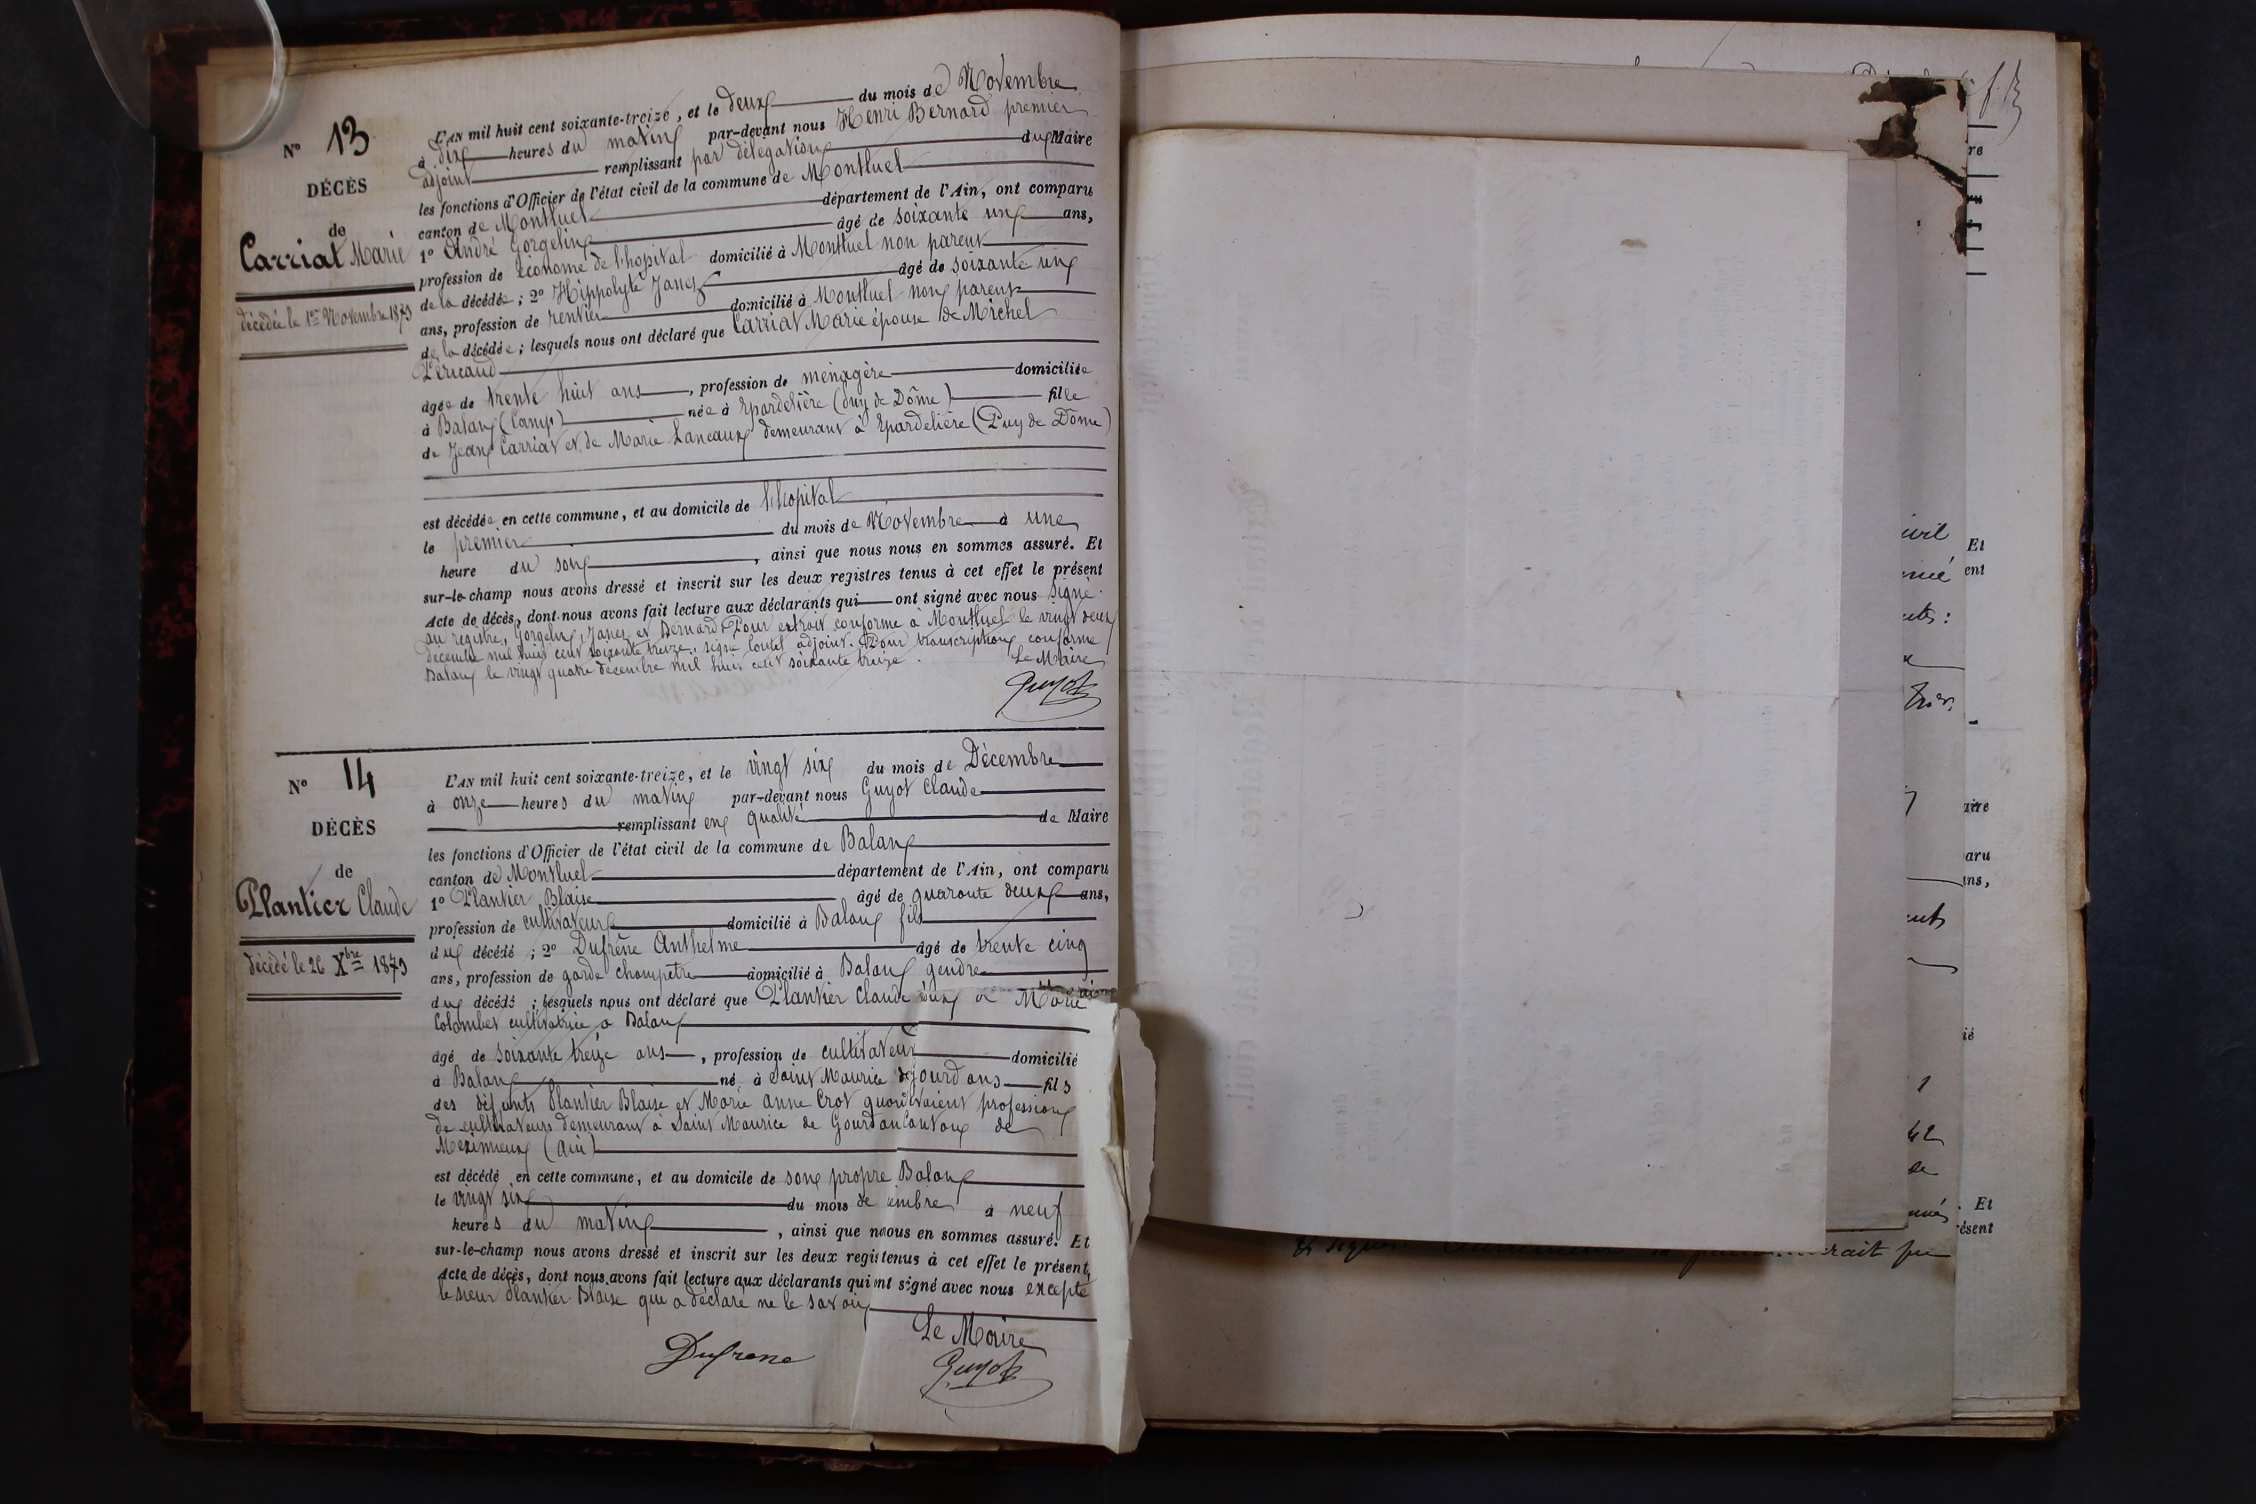 N° 13
DÉCÈS
de
Carriat Marie
décédée le 1er Novembre 1873
L'AN mil huit cent soixante-treize, et le deux du mois de Novembre
à dix heures du matin par-devant nous Henri Bernard premier
adjoint remplissant par délégation du Maire
les fonctions d'Officier de l'état civil de la commune de Montluel
canton de Montluel département de l'Ain, ont comparu
1° André Gorgelin âgé de soixante un ans,
profession de Econome de l'hopital domicilié à Montluel non parent
de la décédée ; 2° Hippolyte Janez âgé de soixante un
ans, profession de rentier domicilié à Montluel non parent
de la décédée ; lesquels nous ont déclaré que Carriat Marie épouse de Michel
Péricaud
âgée de trente huit ans, profession de ménagère domiciliée
à Balan (Camp) née à Epardelière (Puy de Dôme) fille
de Jean Carriat et de Marie Laneaux demeurant à Epardelière (Puy de Dôme)
est décédée en cette commune, et au domicile de l'hopital
le premier du mois de Novembre à une
heure du soir, ainsi que nous nous en sommes assuré. Et
sur-le-champ nous avons dressé et inscrit sur les deux registres tenus à cet effet le présent
Acte de décès, dont nous avons fait lecture aux déclarants qui ont signé avec nous Signé
au registre, Gorgelin, Janez et Bernard. Pour extrait conforme à Montluel le vingt deux
décembre mil huit cent soixante treize, signé adjoint. Pour transcription conforme
Balan le vingt quatre décembre mil huit cent soixante treize.
Le Maire
Guyot
N° 14
DÉCÈS
de
Plantier Claude
décédé le 26 Xbre 1873
L'AN mil huit cent soixante-treize, et le vingt six du mois de Décembre
à onze heures du matin par-devant nous Guyot Claude
remplissant en qualité de Maire
les fonctions d'Officier de l'état civil de la commune de Balan
canton de Montluel département de l'Ain, ont comparu
1° Plantier Blaise âgé de quarante deux ans,
profession de cultivateur domicilié à Balan fils
du décédé ; 2° Dufrêne Anthelme âgé de trente cinq
ans, profession de garde champetre domicilié à Balan gendre
du décédé ; lesquels nous ont déclaré que Plantier Claude époux de Marie
Colombet cultivatrice a Balan
âgé de soixante treize ans, profession de cultivateur domicilié
à Balan né à Saint Maurice de Gourdans fils
des défunts Plantier Blaise et Marie Anne Crot quand vivaient profession
de cultivateurs demeurant à Saint Maurice de Gourdan Canton de
Meximieux (Ain)
est décédé en cette commune, et au domicile de son propre Balan
le vingt six du mois de embre à neuf
heures du matin, ainsi que nous en sommes assuré. Et
sur-le-champ nous avons dressé et inscrit sur les deux registenus à cet effet le présent
Acte de décès, dont nous avons fait lecture aux déclarants qui ont signé avec nous excepté
le sieur Plantier Blaise que a déclaré ne le savoir
Le Maire
Dufrene
Guyot